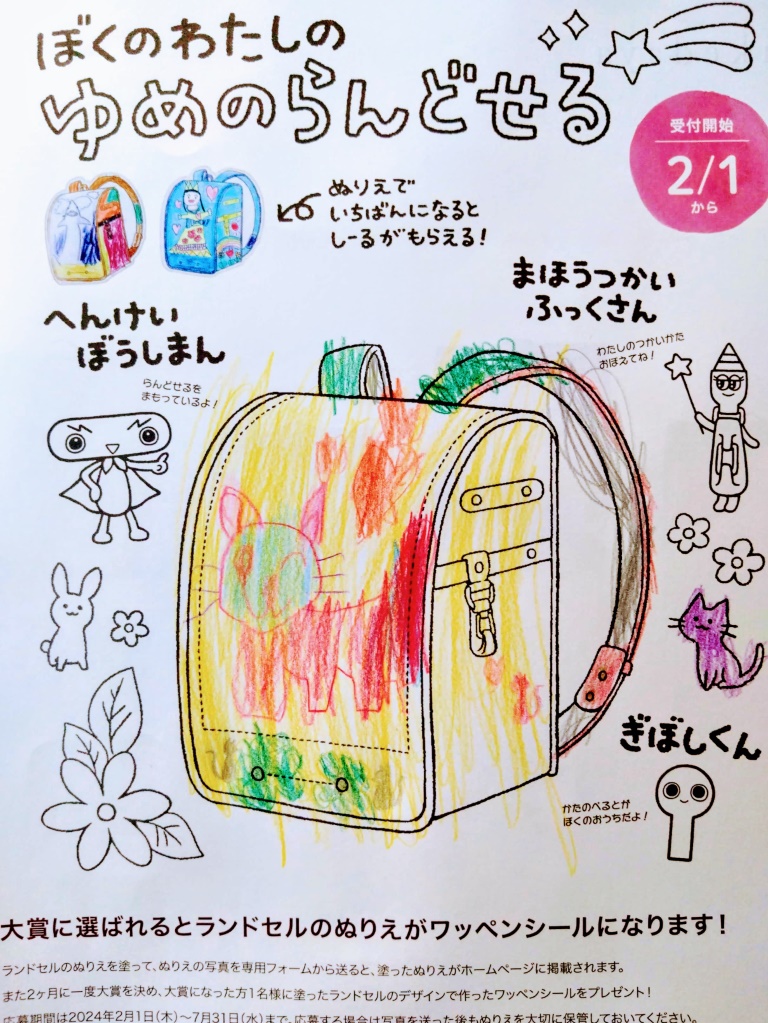 ぼくのわたしの
ゆめのらんどせる
受付開始
2/1
から
ぬりえで
いちばんになると
しーるがもらえる！
まほうつかい
ふっくさん
わたしのつかいかた
おぼえてね！
へんけい
ぼうしまん
らんどせるを
まもっているよ！
ぎぼしくん
かたのべるとが
ぼくのおうちだよ！
大賞に選ばれるとランドセルのぬりえがワッペンシールになります！
ランドセルのぬりえを塗って、ぬりえの写真を専用フォームから送ると、塗ったぬりえがホームページに掲載されます。
また2ヶ月に一度大賞を決め、大賞になった方1名様に塗ったランドセルのデザインで作ったワッペンシールをプレゼント！
応募期間は2024年2月1日(木)〜7月31日(水)まで。応募する場合は写真を送った後もぬりえを大切に保管しておいてください。